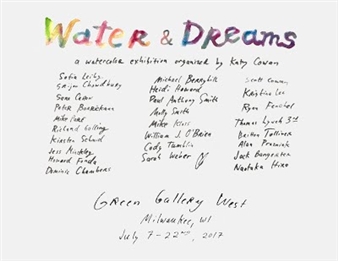 Water & Dreams
a watercolor exhibition organized by Katy Cowan
Sofia Leiby
Sean Cairns
Peter Barrickman
Mike Paré
Richard Galling
Kirsten Schmid
Jess Hinckley
Howard Fonda
Dominic Chambers
Michael Berryhill
Heidi Howard
Paul Anthony Smith
Molly Smith
Mike Kloss
William J. O'Brien
Cody Tumblin
Sarah Weber
Scott Cowan
Kristina Lee
Ryan
Thomas Lynch 3rd
Alan
Jack
Naotaka Hiro
Green Gallery West
Milwaukee, WI
July 7-22nd, 2017